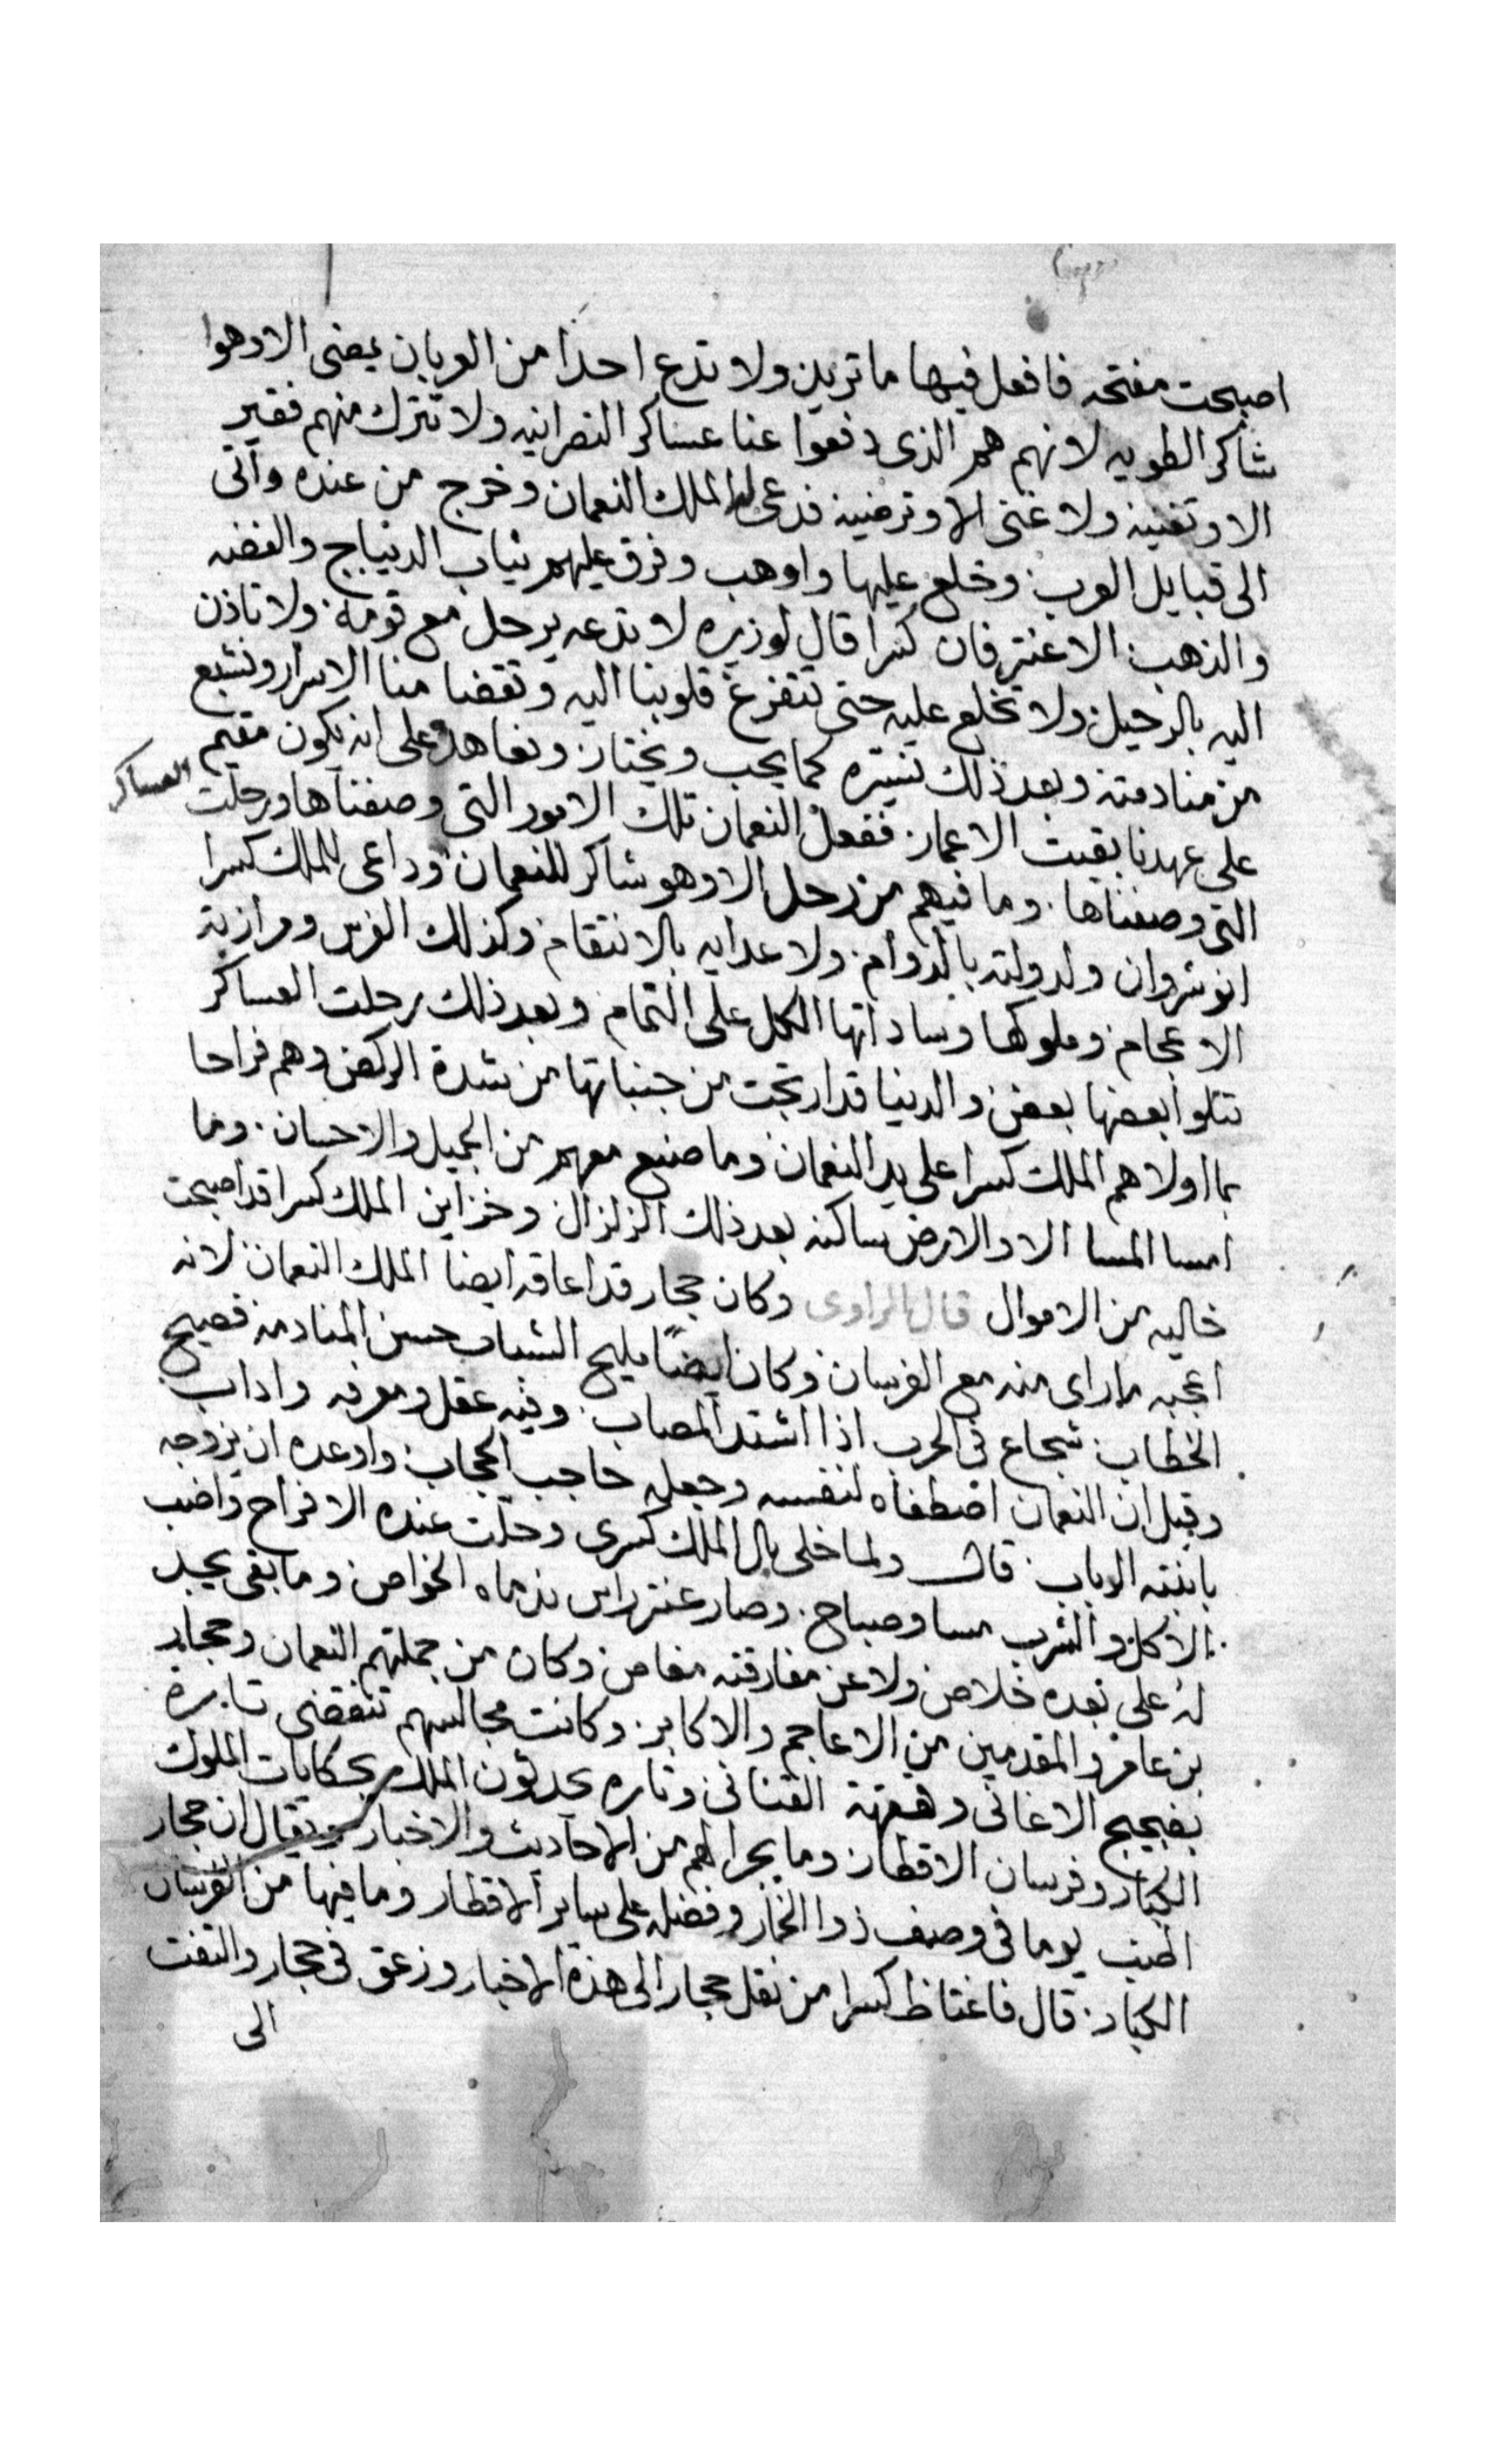 اصبحت مفتحه فافعل فيها ما تريد ولا تدع احدا من العربان يمضى الا وهوا
شاكر الطويه لانهم هم الذى دفعوا عنا عساكر النصرانيه ولا تترك منهم فقير
الا وتغنيه ولا غنى الا وترضيه فدعى له الملك النعمان وخرج من عنده واتى
الى قبايل العرب وخلع عليها واوهب وفرق عليهم ثياب الديباج والفضه
والذهب الا عنتر فان كسرا قال لوزيره لا تدعه يرحل مع قومه ولا تاذن
اليه بالرحيل ولا تخلع عليه حتى تتفرغ قلوبنا اليه وتقضا منا الاسرار ونشبع
من منادمته وبعد ذلك نسيره كما يحب ويختار ونعاهده على انه يكون مقيم
على عهدنا بقيت الاعمار ففعل النعمان تلك الامور التى وصفناها ورحلت العساكر
التى وصفناها وما فيهم من رحل الا وهو شاكر للنعمان وداعى للملك كسرا
انوشروان ولدولته بالدوام ولاعدايه بالانتقام وكذلك الفرس ومرازبة
الاعجام وملوكها وساداتها الكل على التمام وبعد ذلك رحلت العساكر
تتلوا بعضها بعض والدنيا قد ارتجت من جنباتها من شدة الركض وهم فراحا
بما اولاهم الملك كسرا على يد النعمان وما صنع معهم من الجميل والاحسان وما
امسا المسا الا والارض ساكنه بعد ذلك الزلزال وخزاين الملك كسرا قد اصبحت
خاليه من الاموال قال الراوى وكان حجار قد اعاقه ايضا الملك النعمان لانه
اعجبه ما راى منه مع الفرسان وكان ايضًا مليح الشباب حسن المنادمه فصيح
الخطاب شجاع فى الحرب اذا اشتد المصاب وفيه عقل ومعرفه واداب
وقيل ان النعمان اصطفاه لنفسه وجعله حاجب الحجاب واوعده ان يزوجه
بابنته الرباب قال ولما خلى بال الملك كسرى وحلت عنده الافراح واضب
الاكل والشرب مسا وصباح وصار عنتر راس ندماه الخواص وما بقى يجد
له على بعده خلاص ولا عن مفارقته مفاص وكان من جملتهم النعمان وحجار
بن عامر والمقدمين من الاعاجم والاكابر وكانت مجالسهم تنقضى تارة
بضجيج الاغانى وقهقهة القنانى وتاره يحدثون الملك بحكايات الملوك
الكبار وفرسان الاقطار وما يجرا لهم من الاحاديث والاخبار ويقال ان حجار
اطنب يوما فى وصف ذوا الخمار وفضله على ساير الاقطار وما فيها من الفرسان
الكبار قال فاغتاظ كسرا من نقل حجار الى هذة الاخبار وزعق فى حجار والتفت
الى